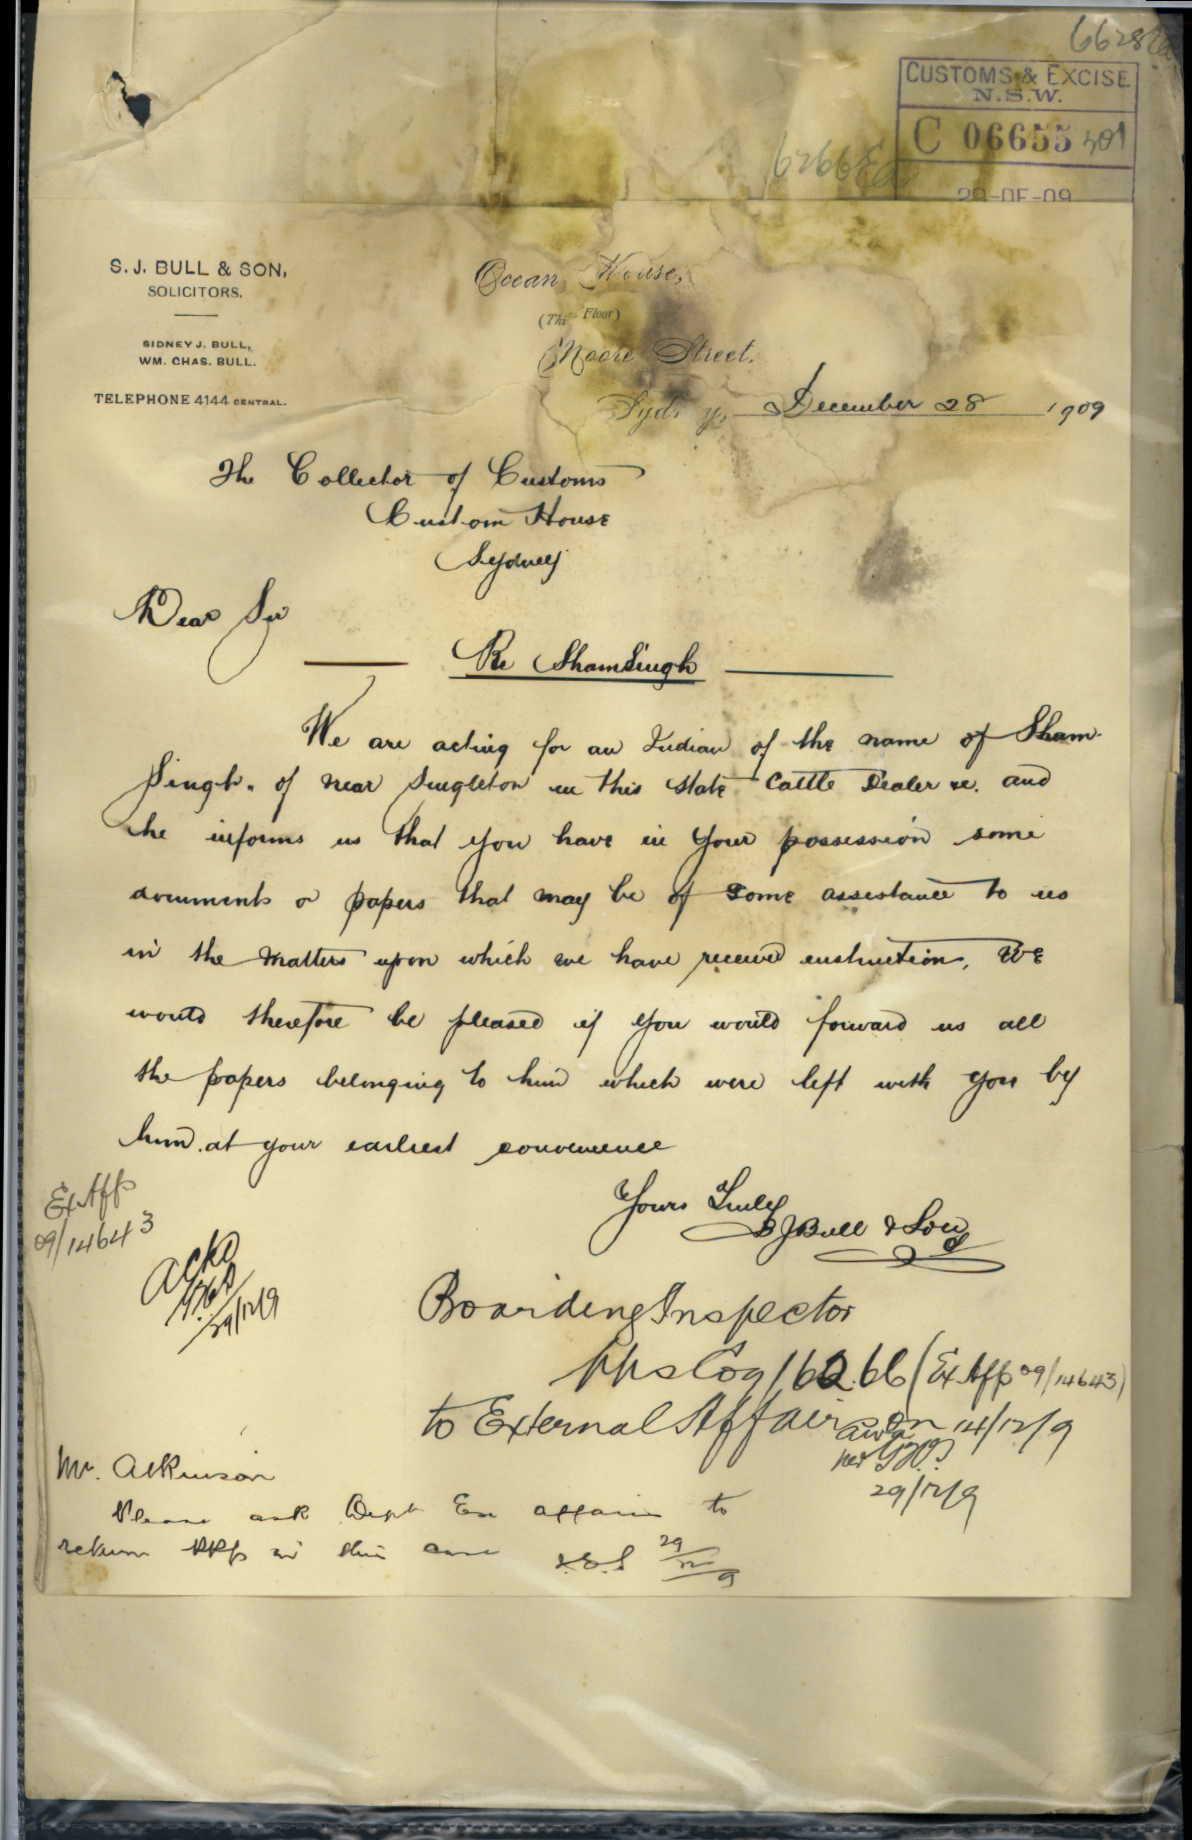 CUSTOMS & EXCISE
N.S.W.
C 06655
29-DE-09
S. J. BULL & SON,
SOLICITORS.
SIDNEY J. BULL,
WM. CHAS. BULL.
TELEPHONE 4144 CENTRAL.
Ocean House,
Floor)
Moore Street.
December 28 1909
The Collector of Customs
Custom House
Sydney
Dear Sir
Re ShamSingh
We are acting for an Indian of the name of Sham
Singh. of near Singleton in this State Cattle Dealer &c. and
he informs us that you have in your possession some
documents or papers that may be of some assistance to us
in the matters upon which we have received instruction, We
would therefore be pleased if you would forward us all
the papers belonging to him which were left with you by
him. at your earliest convenience
Yours Truly
S J Bull & Son
Ex Aff
09/14643
Ackd
29/12/9
Boarding Inspector
(Ex Aff 09/14643)
to External Affairs on 14/12/9
29/12/9
Mr. Atkinson
Please ask Dept Ex affairs to
return PPp in this case
29/12/9